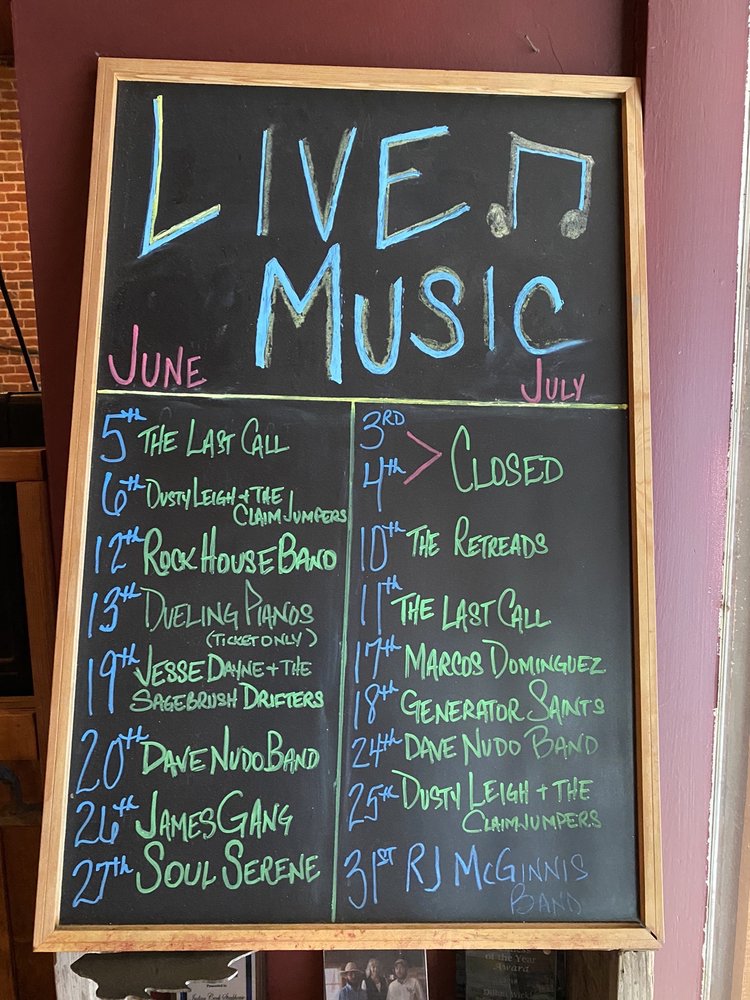 LIVE
MUSIC
JUNE
5th THE LAST CALL
6th DUSTY LEIGH + THE
CLAIM JUMPERS
12th ROCK HOUSE BAND
13th DUELING PIANOS
(TICKET ONLY)
19th JESSE DAYNE + THE
SAGEBRUSH DRIFTERS
20th DAVE NUDO BAND
26th JAMES GANG
27th SOUL SERENE
JULY
3RD
4th CLOSED
10th THE RETREADS
11th THE LAST CALL
17th MARCOS DOMINGUEZ
18th GENERATOR SAINTS
24th DAVE NUDO BAND
25th DUSTY LEIGH + THE
CLAIMJUMPERS
31ST RJ MCGINNIS
BAND
of the Year
Award